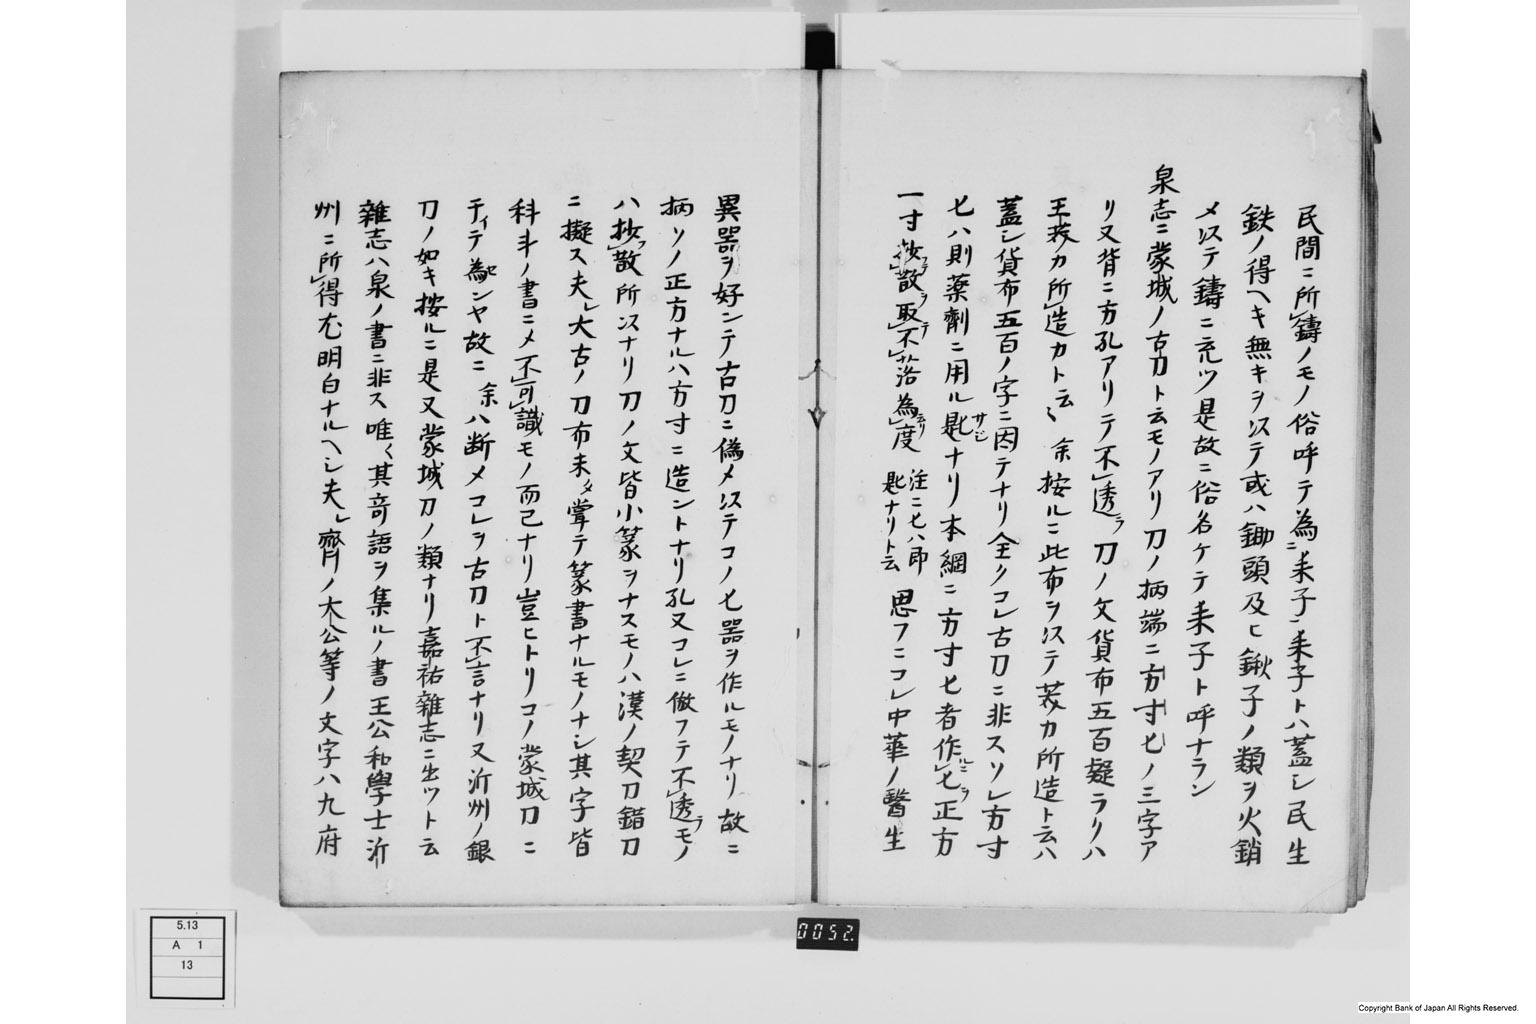 民間ニ所鋳ノモノ俗呼テ為耒子耒子トハ蓋シ民生
鉄ノ得ヘキ無キヲ以テ或ハ鋤頭及ヒ鍬子ノ類ヲ火銷
メ以テ鑄ニ充ツ是故ニ俗名ケテ耒子ト呼ナラン
泉志ニ蒙城ノ古刀ト云モノアリ刀ノ柄端ニ方寸匕ノ三字ア
リ又背ニ方孔アリテ不透ラ刀ノ文貨布五百疑ラクハ
王莽カ所造カト云〻余按ルニ此布ヲ以テ莽カ所造ト云ハ
蓋シ貨布五百ノ字ニ因テナリ全クコレ古刀ニ非スソレ方寸
匕ハ則薬劑ニ用ル匙サジナリ本綱ニ方寸匕者作ルニ匕ヲ正方
一寸抄散取不落為度 注ニ匕ハ即匙ナリト云 思フニコレ中華ノ醫生
異器ヲ好ンテ古刀ニ偽メ以テコノ匕器ヲ作ルモノナリ故ニ
柄ソノ正方ナルハ方寸ニ造ントナリ孔又コレニ倣フテ不透ラモノ
ハ抄散所以ナリ刀ノ文皆小篆ヲナスモノハ漢ノ契刀錯刀
ニ擬ス夫レ大古ノ刀布未タ甞テ篆書ナルモノナシ其字皆
科斗ノ書ニメ不可識モノ而已ナリ豈ヒトリコノ蒙城刀ニ
テ為ンヤ故ニ余ハ断メコレヲ古刀ト不言ナリ又沂州ノ銀
刀ノ如キ按ルニ是又蒙城刀ノ類ナリ嘉祐雜志ニ出ツト云
雜志ハ泉ノ書ニ非ス唯〻其竒語ヲ集ルノ書王公和學士沂
州ニ所得尤明白ナルヘシ夫レ齊ノ大公等ノ文字ハ九府
5.13
A 1
13
0052.
Copyright Bank of Japan All Rights Reserved.